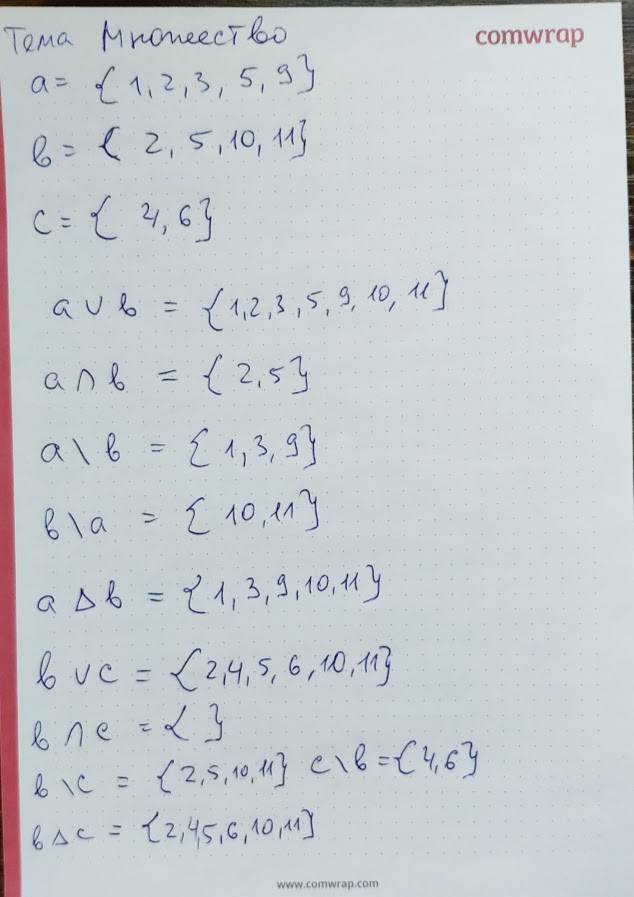 Тема Множество
comwrap
a = {1, 2, 3, 5, 9}
в = { 2, 5, 10, 11}
c = { 4, 6}
a ∪ в = {1, 2, 3, 5, 9, 10, 11}
a ∩ в = {2, 5}
a \ в = {1, 3, 9}
в \ a = {10, 11}
a Δ в = {1, 3, 9, 10, 11}
в ∪ c = {2, 4, 5, 6, 10, 11}
в ∩ c = { }
в \ c = {2, 5, 10, 11} c \ в = {4, 6}
в Δ c = {2, 4, 5, 6, 10, 11}
www.comwrap.com